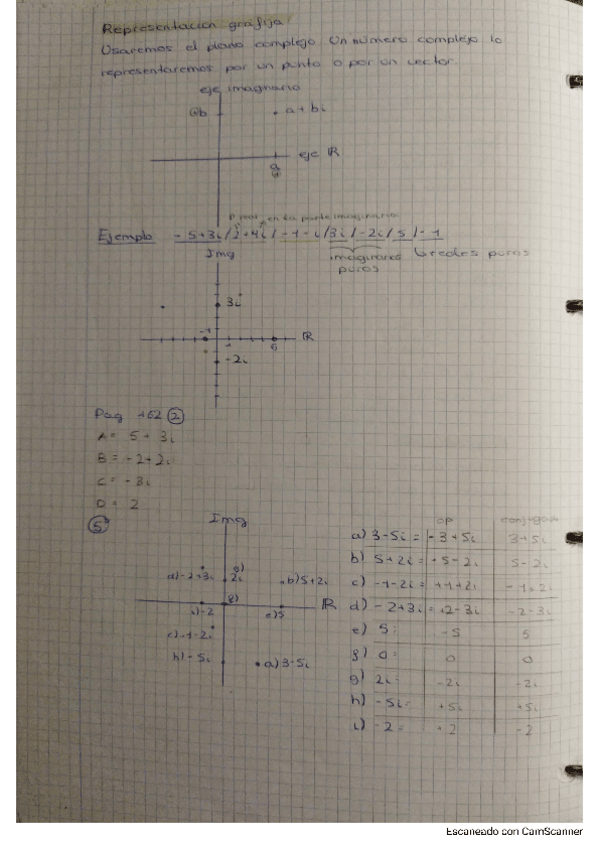 Representación gráfija
Usaremos el plano complejo. Un número complejo lo
representaremos por un punto o por un vector.
eje imaginario
b
a + bi
eje R
a
parte imaginaria
Ejemplo -5+3i / 2+4i / -1-i / 3i / -2i / 5 / -1
Img
imaginarios puros
reales puros
3i
-1
1
R
-2i
Pag 162 (2)
A = 5 + 3i
B = -2+2i
C = -3i
D = 2
5
Img
d) -2+3i
g)
2i
b) 5+2i
f)
R
i) -2
e) 5
c) -1-2i
h) -5i
a) 3-5i
op conjugado
a) 3-5i = -3+5i 3+5i
b) 5+2i = -5-2i 5-2i
c) -1-2i = +1+2i -1+2i
d) -2+3i = +2-3i -2-3i
e) 5: -5 5
f) 0: 0 0
g) 2i: -2i -2i
h) -5i= +5i +5i
i) -2= +2 -2
Escaneado con CamScanner